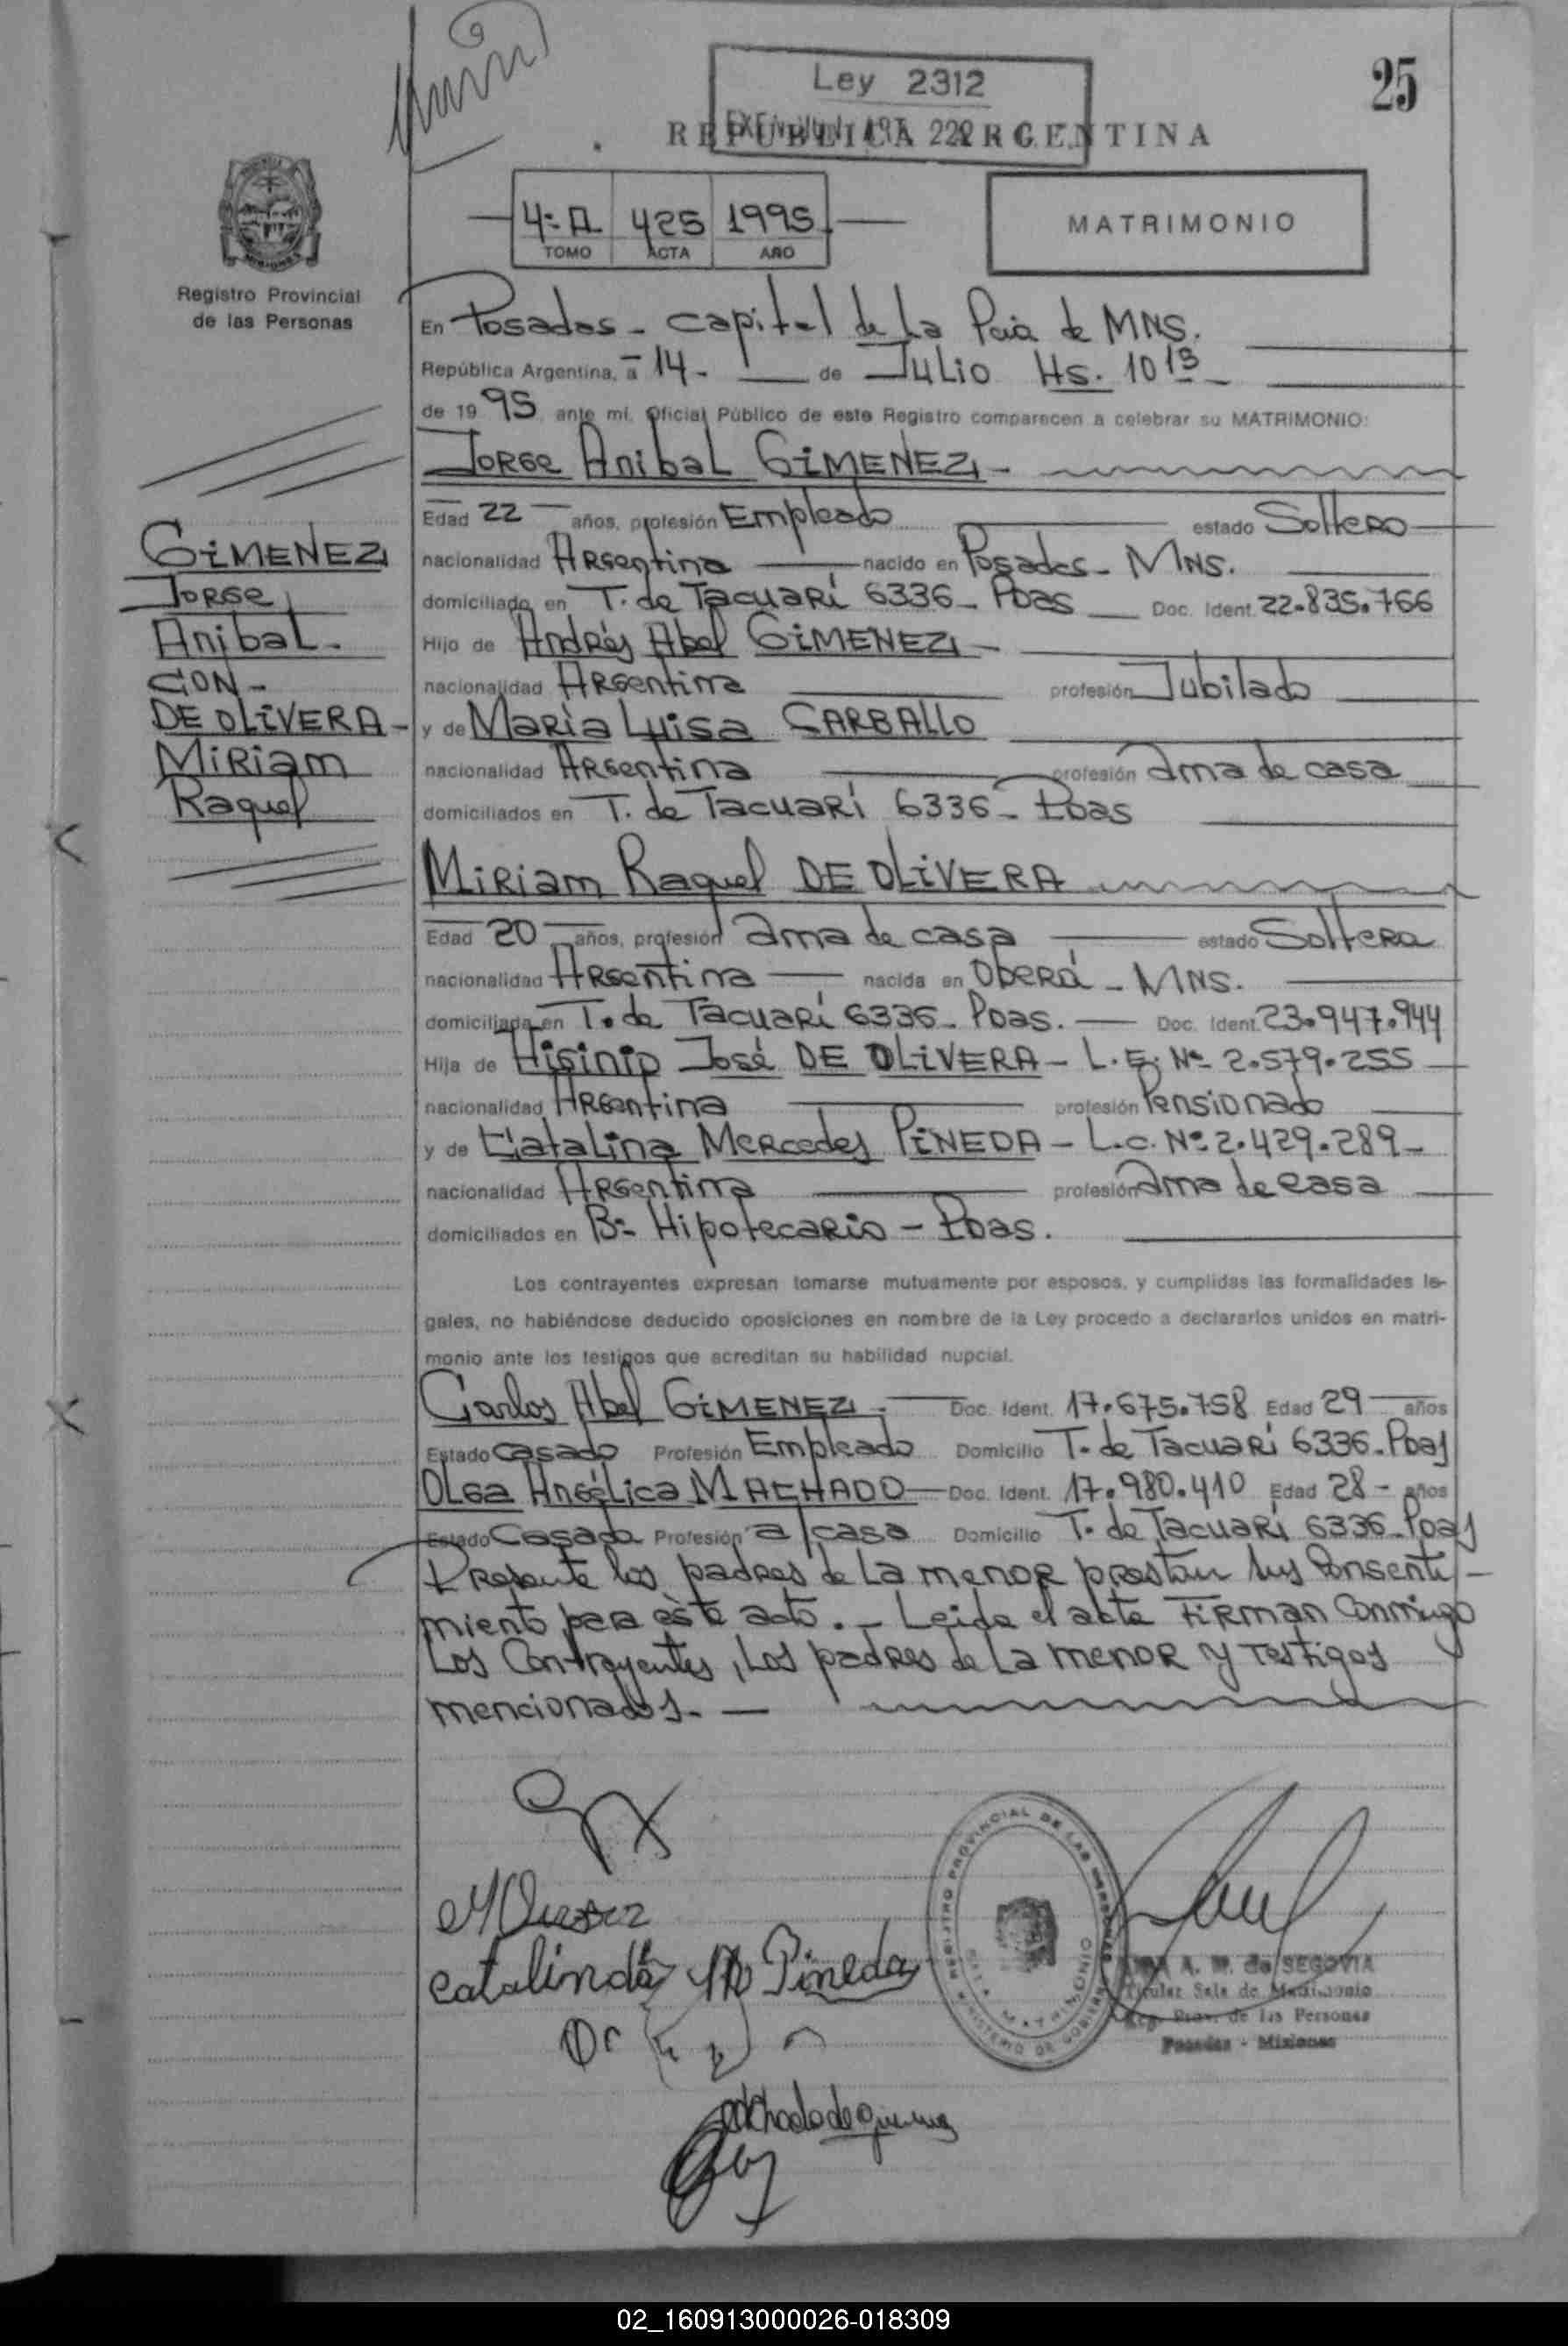 Ley 2312
25
REPUBLICA ARGENTINA
4:A 425 1995
TOMO ACTA AÑO
MATRIMONIO
Registro Provincial
de las Personas
En Posadas - Capital de La Pcia de MNS.
República Argentina, a 14 - de Julio Hs. 10 15
de 1995 ante mí, Oficial Público de este Registro comparecen a celebrar su MATRIMONIO:
Jorge Anibal GIMENEZ -
Edad 22 años, profesión Empleado estado Soltero
nacionalidad Argentina nacido en Posadas - MNS.
domiciliado en T. de Tacuarí 6336 - Pdas Doc. Ident. 22.835.766
Hijo de Andrés Abel GIMENEZ -
nacionalidad Argentina profesión Jubilado
y de María Luisa CARBALLO
nacionalidad Argentina profesión ama de casa
domiciliados en T. de Tacuarí 6336 - Pdas
GIMENEZ
Jorge
Anibal -
CON -
DE OLIVERA -
Miriam
Raquel
Miriam Raquel DE OLIVERA
Edad 20 años, profesión ama de casa estado Soltera
nacionalidad Argentina nacida en Oberá - MNS.
domiciliada en T. de Tacuarí 6336 - Pdas. Doc. Ident. 23.947.944
Hija de Higinio José DE OLIVERA - L.E. Nº 2.579.255
nacionalidad Argentina profesión Pensionado
y de Catalina Mercedes PINEDA - L.C. Nº 2.429.289 -
nacionalidad Argentina profesión ama de casa
domiciliados en Bº Hipotecario - Pdas.
Los contrayentes expresan tomarse mutuamente por esposos, y cumplidas las formalidades le-
gales, no habiéndose deducido oposiciones en nombre de la Ley procedo a declararlos unidos en matri-
monio ante los testigos que acreditan su habilidad nupcial.
Carlos Abel GIMENEZ - Doc. Ident. 17.675.758 Edad 29 años
Estado Casado Profesión Empleado Domicilio T. de Tacuarí 6336 - Pdas
Olga Angélica MACHADO Doc. Ident. 17.980.410 Edad 28 - años
Estado Casada Profesión a/casa Domicilio T. de Tacuarí 6336 - Pdas
Presente los padres de La menor prestan sus Consenti-
miento para éste acto. - Leida el acta Firman Conmigo
Los Contrayentes, Los padres de La menor y Testigos
mencionados. -
Catalinda M Pineda
REGISTRO PROVINCIAL DE LAS PERSONAS
MINISTERIO DE GOBIERNO
MATRIMONIO
A. M. de SEGOVIA
Titular Sala de Matrimonio
Reg. Prov. de las Personas
Posadas - Misiones
02_160913000026-018309